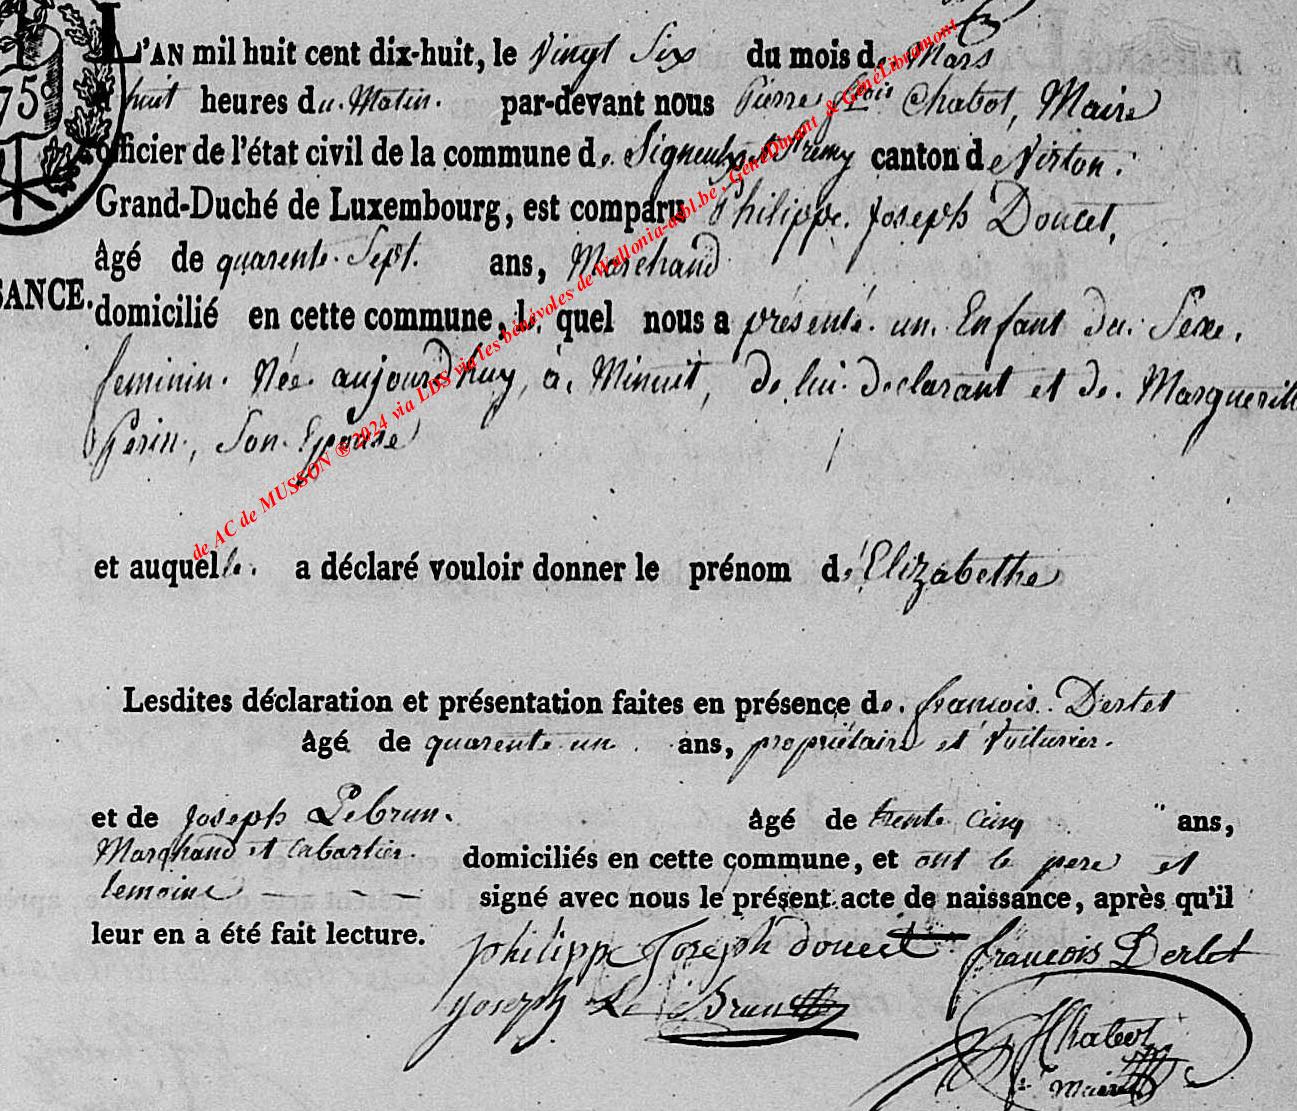 L'AN mil huit cent dix-huit, le Vingt Six du mois de Mars
à huit heures du Matin. par-devant nous Pierre fçois Chabot, Maire
officier de l'état civil de la commune de Signeulx St remy canton de Virton.
Grand-Duché de Luxembourg, est comparu Philippe Joseph Doucet,
âgé de quarente Sept. ans, Marchand
SANCE.
domicilié en cette commune, le quel nous a présenté un Enfant du Sexe
feminin. Née aujourdhuy, à Minuit, de lui declarant et de Margueritt
Perin, Son Epouse
et auquelle a déclaré vouloir donner le prénom d'Elizabethe
Lesdites déclaration et présentation faites en présence de françois Dertet
âgé de quarente un ans, propriétaire et Voiturier.
et de joseph Lebrun. âgé de trente Cinq ans,
Marchand et Cabartier domiciliés en cette commune, et ont le pere et
temoins signé avec nous le présent acte de naissance, après qu'il
leur en a été fait lecture.
philippe Joseph doucet françois Derlet
joseph Le Brun
Chabot
maire
75
de AC de MUSSON ® 2024 via LDS via les bénévoles de Wallonia-asbl.be, GénéDinant & GénéLibramont